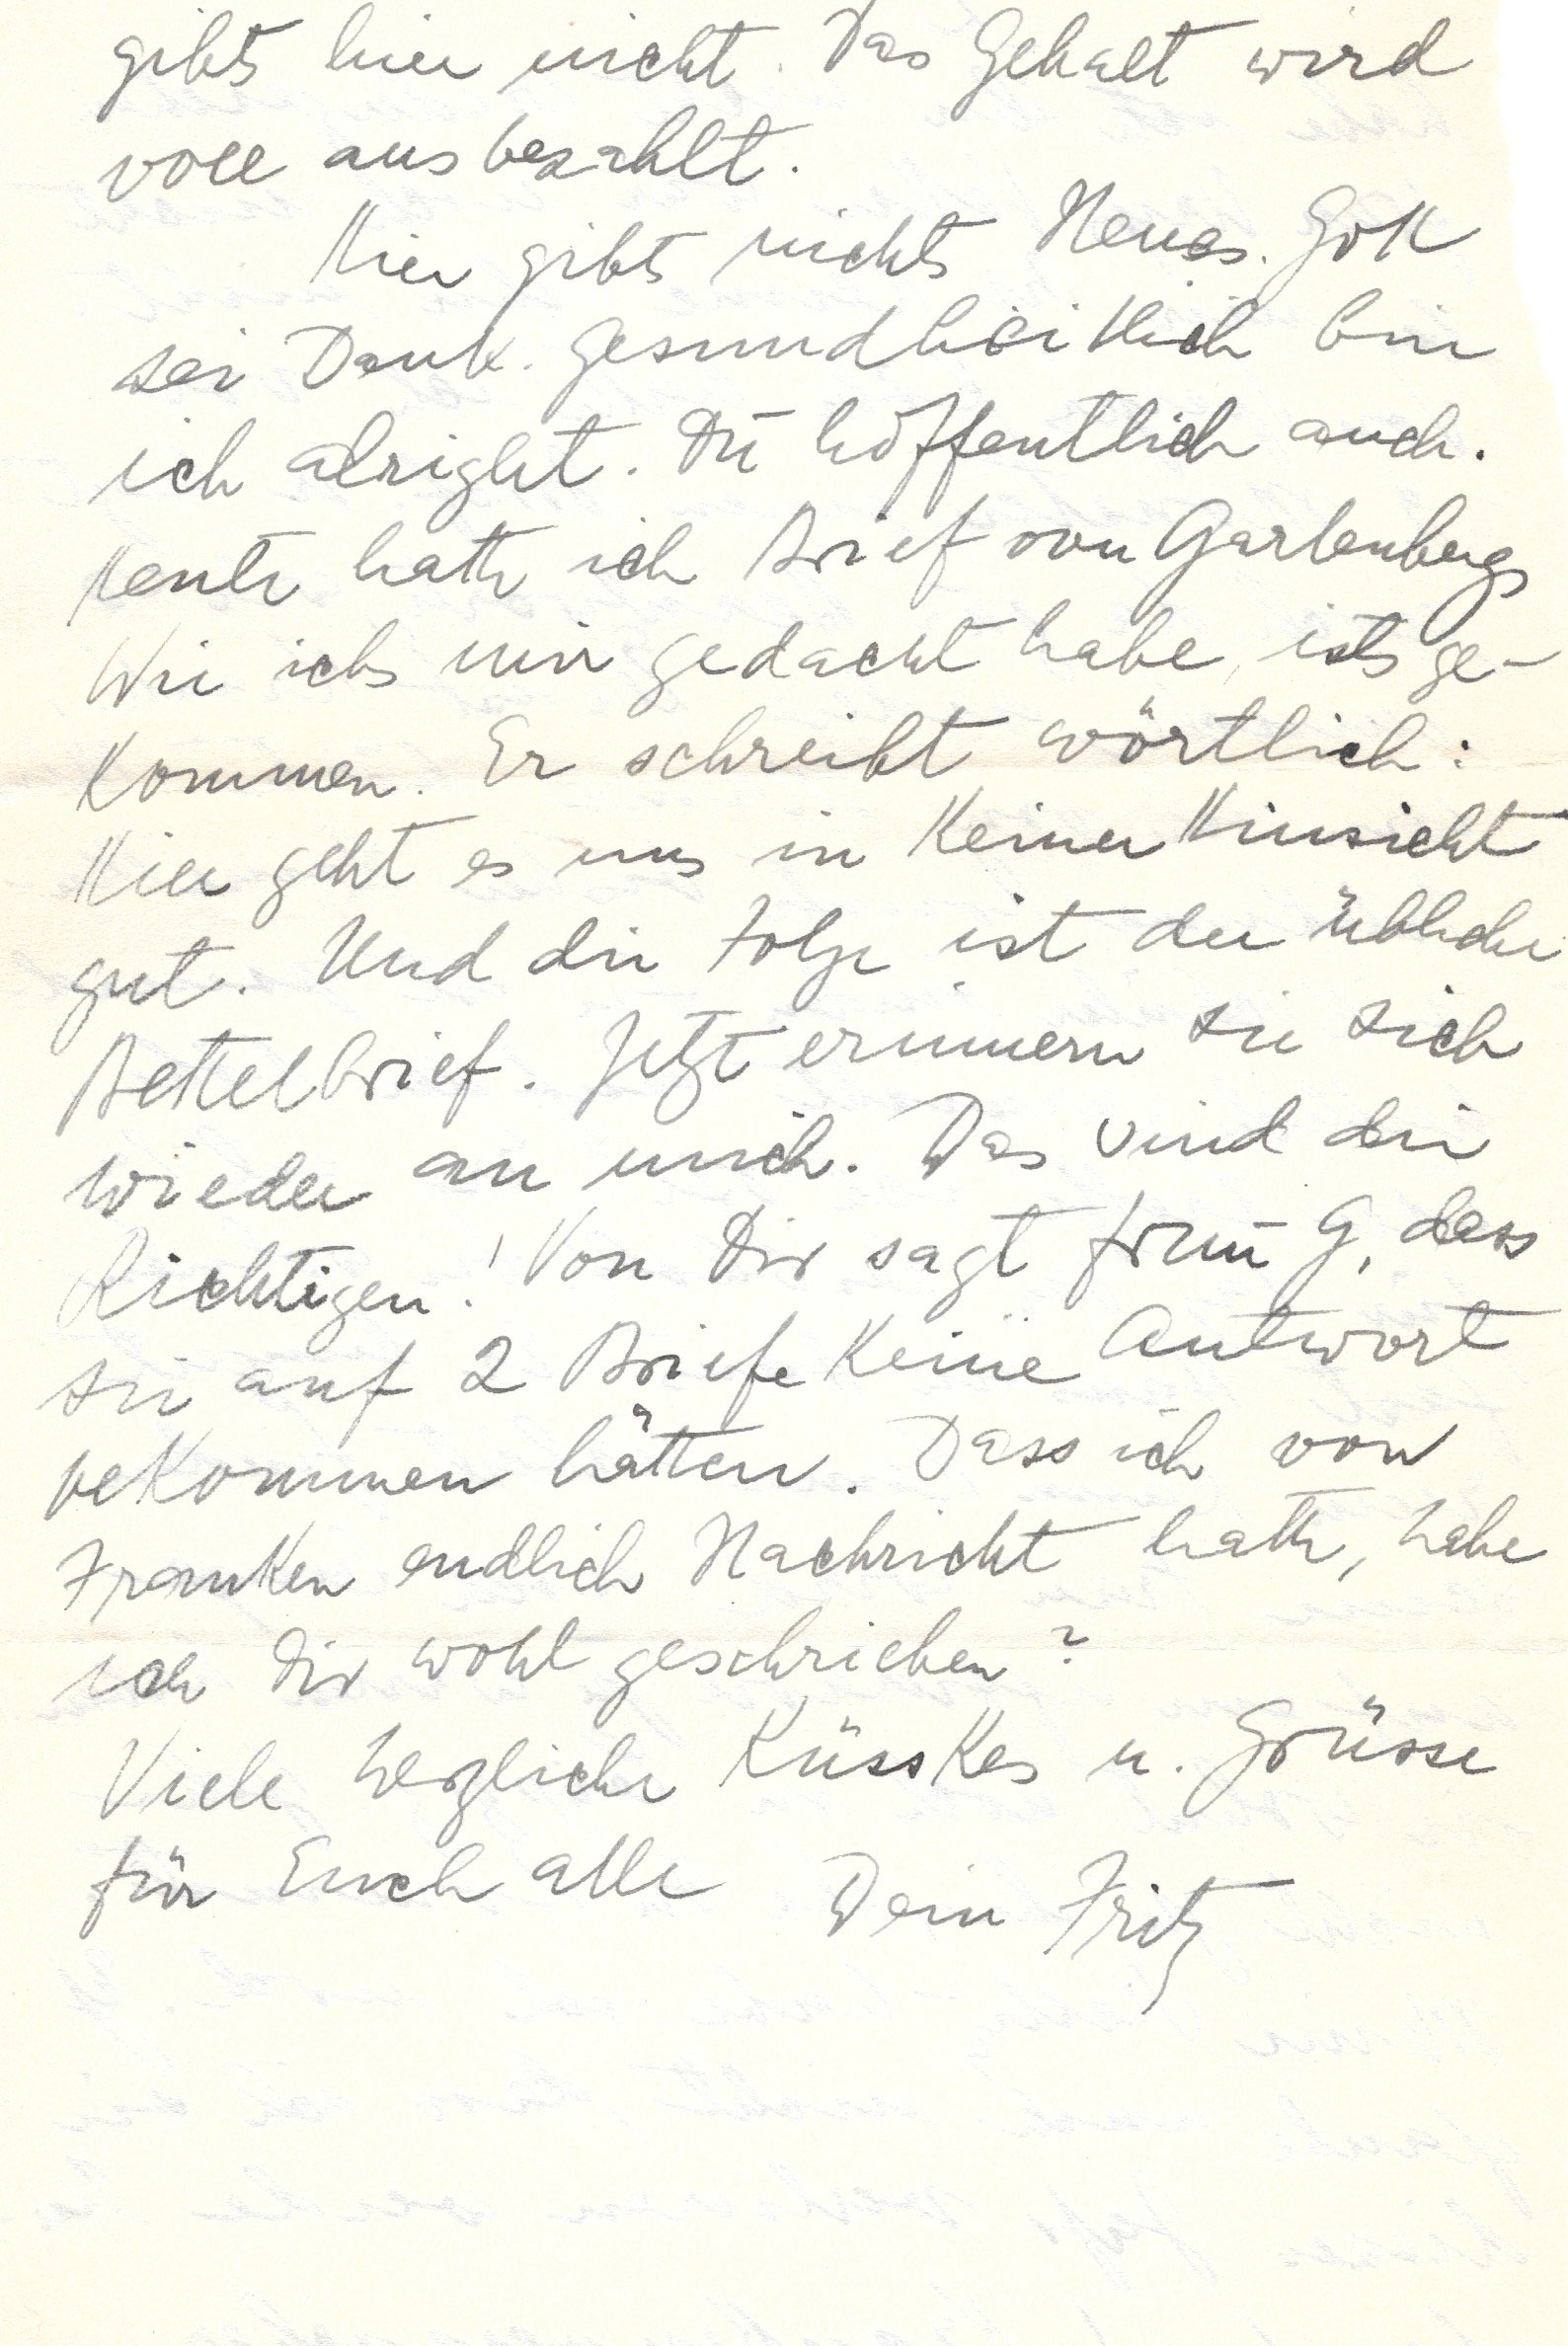 gibts hier nicht. Das Gehalt wird
voll ausbezahlt.
Hier gibts nichts Neues. Gott
sei Dank. Gesundheitlich bin
ich alright. Du hoffentlich auch.
Heute hatte ich Brief von Gartenbergs
Wie ichs mir gedacht habe, ists ge-
kommen. Er schreibt wörtlich:
Hier geht es uns in keiner Hinsicht
gut. Und die Folge ist der übliche
Bettelbrief. Jetzt erinnern sie sich
wieder an mich. Das sind die
Richtigen! Von Dir sagt Frau G, dass
sie auf 2 Briefe keine Antwort
bekommen hätten. Dass ich von
Franken endlich Nachricht hatte, habe
ich Dir wohl geschrieben?
Viele herzliche Küsskes u. Grüsse
für Euch alle Dein Fritz